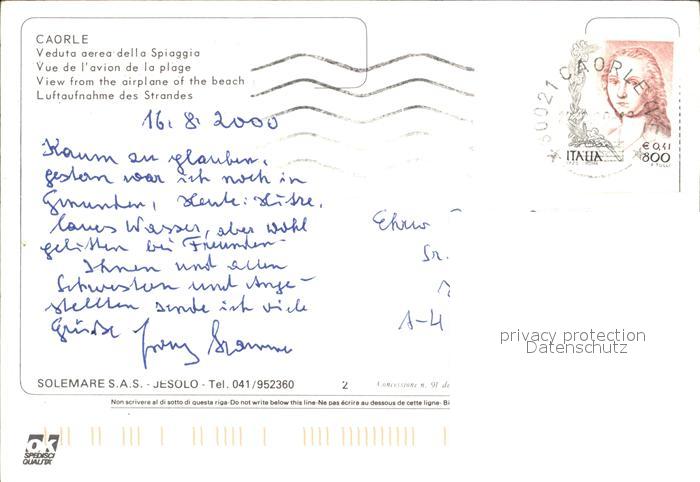 CAORLE
Veduta aerea della Spiaggia
Vue de l'avion de la plage
View from the airplane of the beach
Luftaufnahme des Strandes
16. 8. 2000
Kaum zu glauben,
gestern war ich noch in
Gmunden, heute: Hitze,
laues Wasser, aber wohl
gelitten bei Freunden.
Ihnen und allen
Schwestern und Ange-
stellten sende ich viele
Grüße Franz
Ehrw
Sr.
A-4
30021 CAORLE
ITALIA
€ 0,41
800
privacy protection
Datenschutz
SOLEMARE S.A.S. - JESOLO - Tel. 041/952360
2
Concessione n. 91 de
Non scrivere al di sotto di questa riga-Do not write below this line-Ne pas écrire au dessous de cette ligne- Bi
ok
SPEDISCI
QUALITÀ